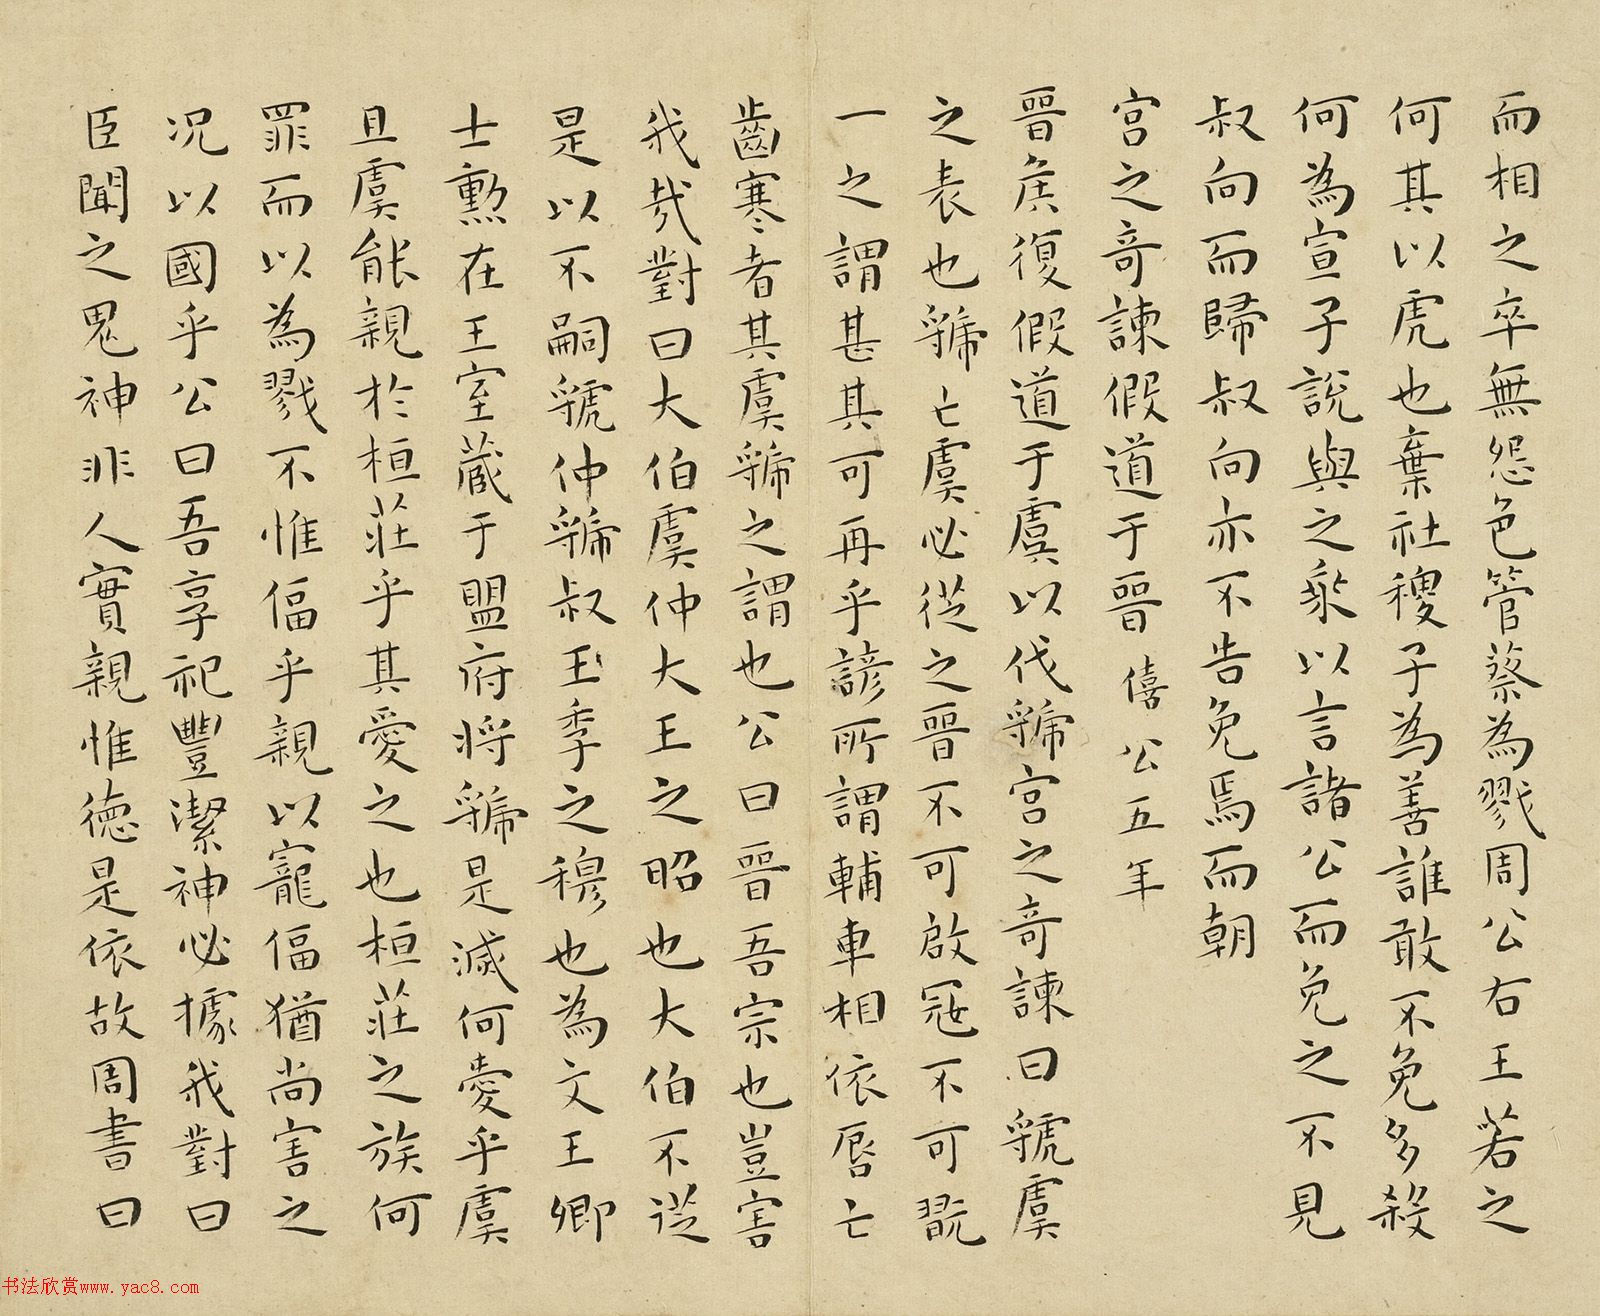 而相之卒無怨色管蔡為戮周公右王若之
何其以虎也棄社稷子為善誰敢不免多殺
何為宣子說與之乘以言諸公而免之不見
叔向而歸叔向亦不告免焉而朝
宮之奇諫假道于晉 僖公五年
晉侯復假道于虞以伐虢宮之奇諫曰虢虞
之表也虢亡虞必從之晉不可啟寇不可翫
一之謂甚其可再乎諺所謂輔車相依唇亡
齒寒者其虞虢之謂也公曰晉吾宗也豈害
我哉對曰大伯虞仲大王之昭也大伯不從
是以不嗣虢仲虢叔王季之穆也為文王卿
士勲在王室藏于盟府將虢是滅何愛乎虞
且虞能親於桓莊乎其愛之也桓莊之族何
罪而以為戮不惟偪乎親以寵偪猶尚害之
况以國乎公曰吾享祀豐潔神必據我對曰
臣聞之鬼神非人實親惟德是依故周書曰
书法欣赏www.yac8.com